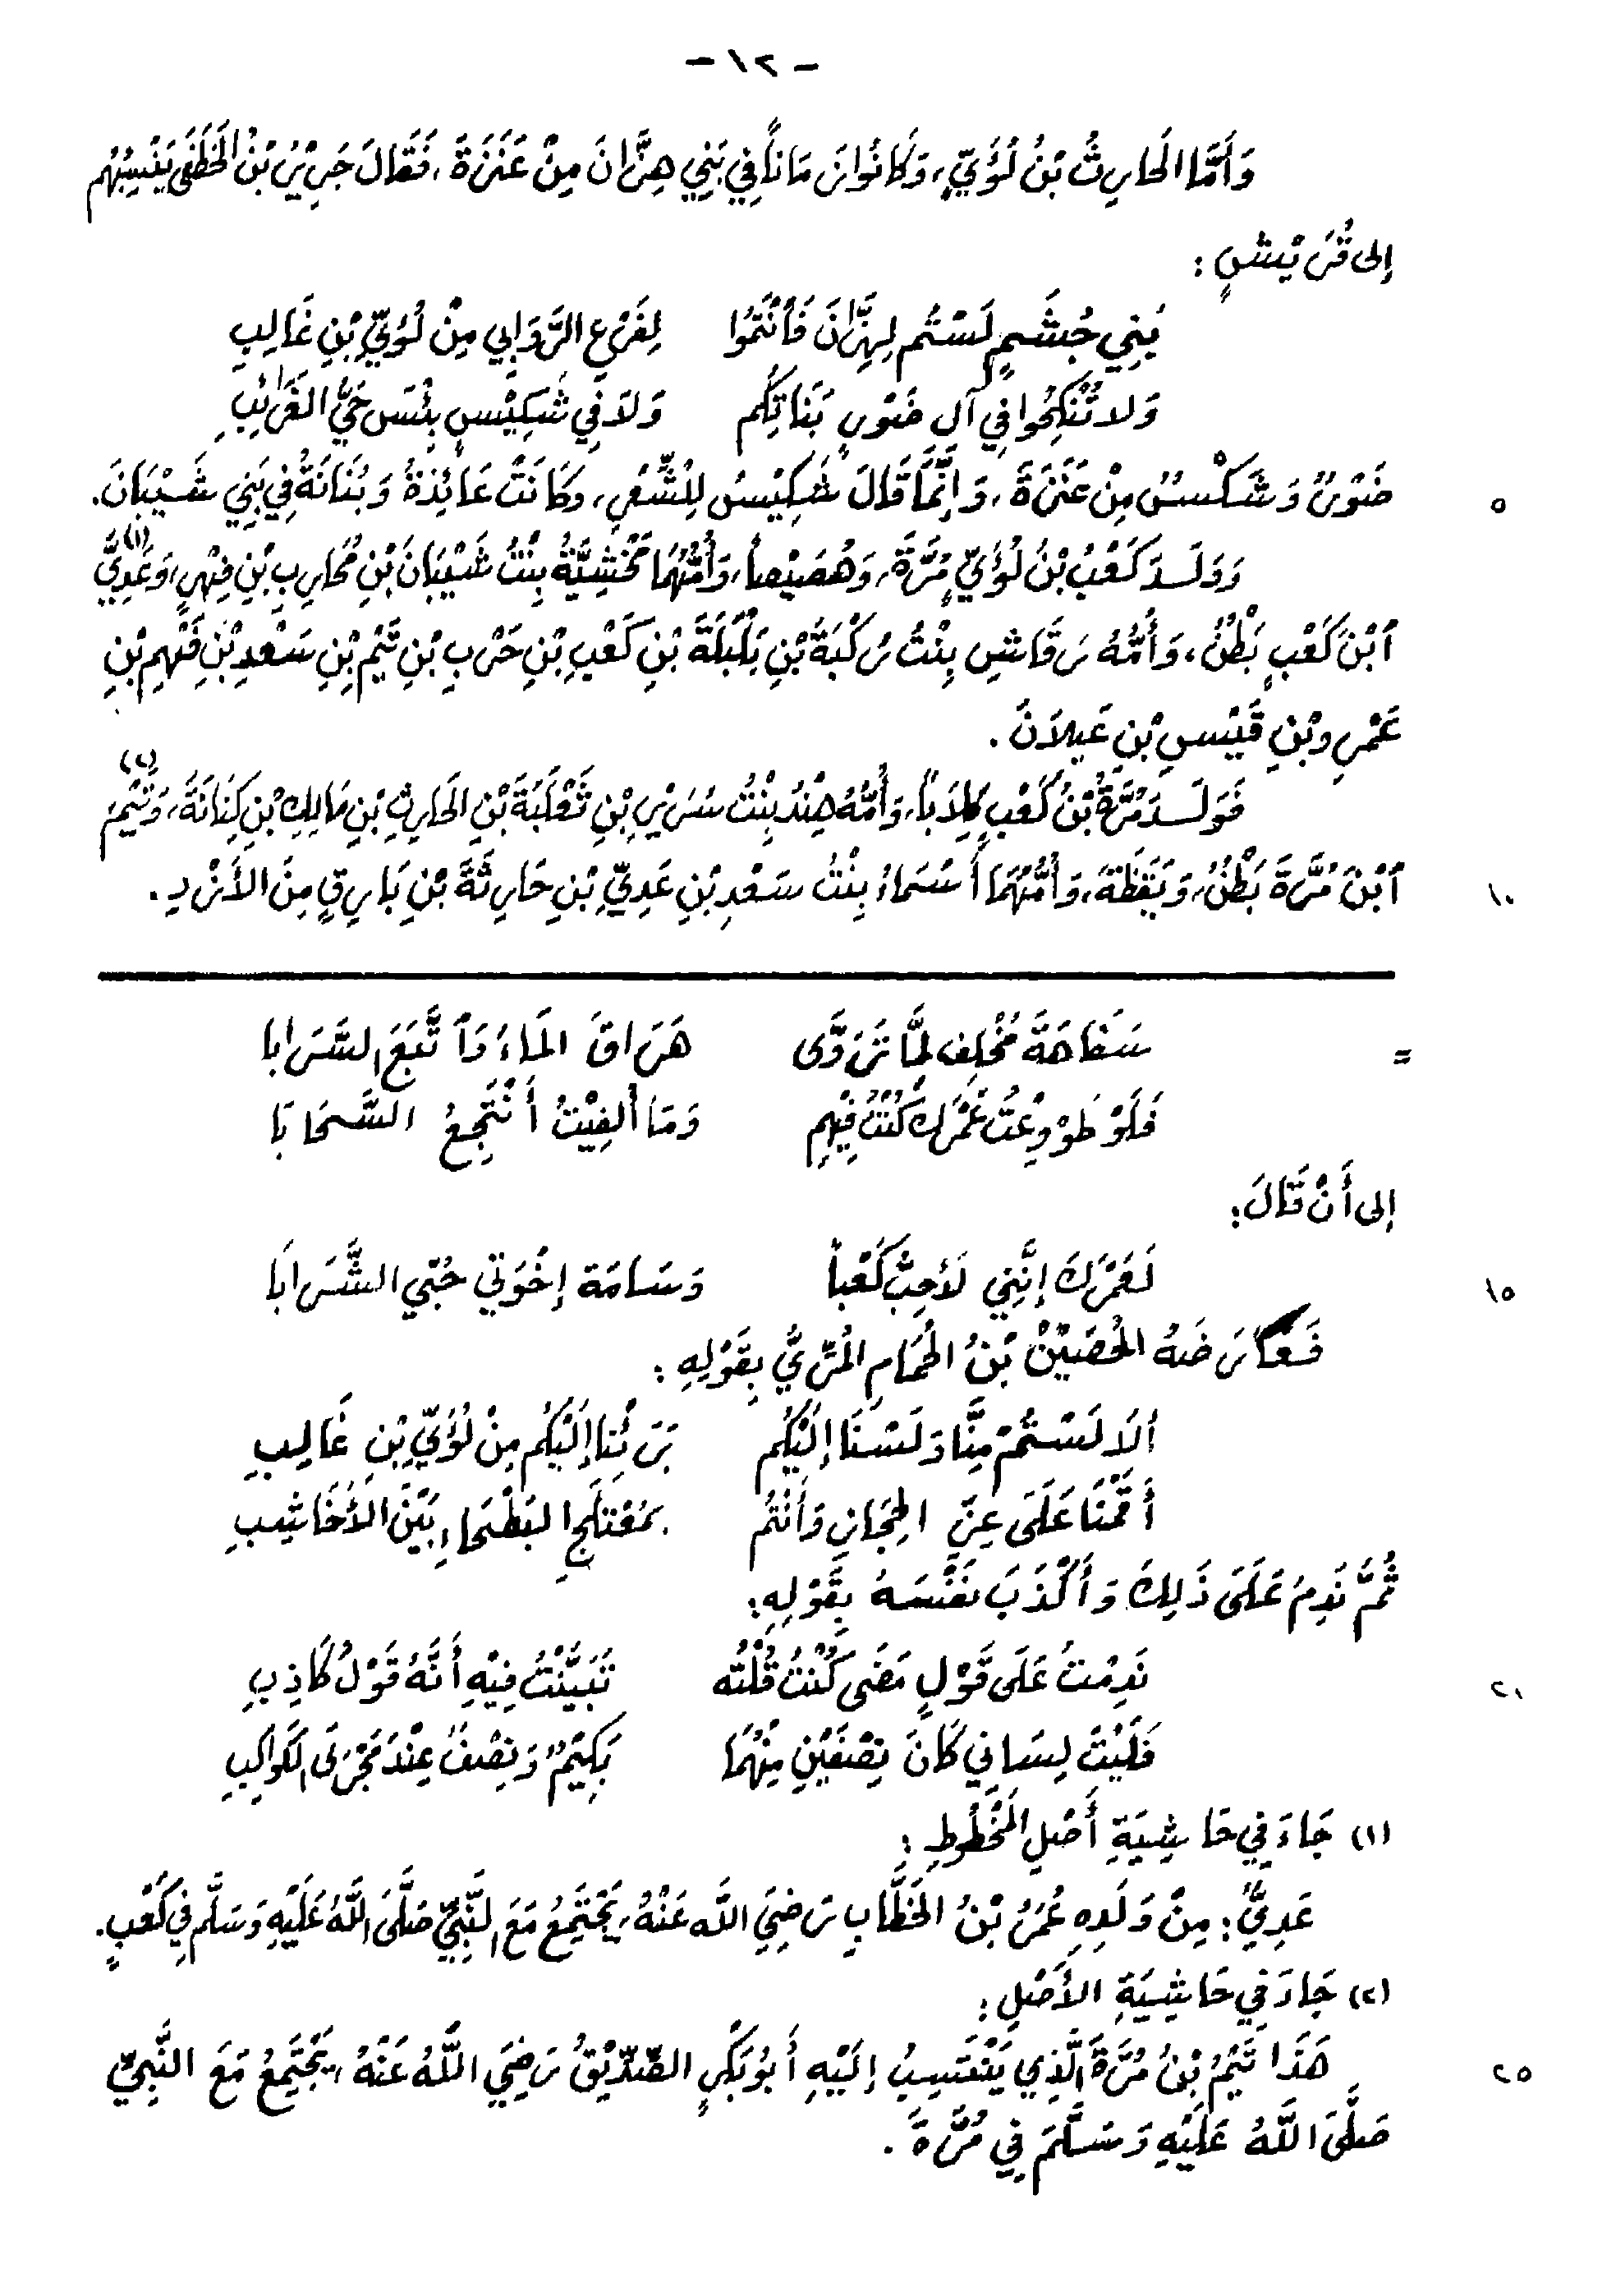 - ١٢ -
وَأَمَّا الحَارِثُ بْنُ لُؤَيٍّ، وَكَانُوا زَمَاناً فِي بَنِي هِزَّانَ مِنْ عَنَزَةَ، فَقَالَ جَرِيْرُ بْنُ الخَطَفَى يَنْسِبُهُم
إلى قُرَيْشٍ :
بَنِي جُشَمٍ لَسْتُم لِهِزَّانَ فَأنْتَمُوا لِفَرْعِ الرَّوَابِي مِنْ لُؤَيِّ بْنِ غَالِبِ
وَلا تُنْكِحُوا فِي آلِ ضَوْرٍ بَنَاتِكُم وَلاَ فِي شَكِيْسٍ بِئْسَ حَيُّ الغَرَائِبِ
٥ ضَوْرٌ وَشَكْسٌ مِنْ عَنَزَةَ، وَإِنَّمَا قَالَ شَكِيْسُ لِلشِّعْرِ، وكَانَتْ عَائِذَةُ وَبُنَانَةُ فِي بَنِي شَيْبَانَ.
وَوَلَدَ كَعْبُ بْنُ لُؤَيٍّ مُرَّةَ، وَهُصَيْصاً، وَأُمُّهُمَا مَخْشِيَّةُ بِنْتُ شَيْبَانَ بْنِ مُحَارِبِ بْنِ فِهْرٍ، وَعَدِيَّ (١)
ٱبْنَ كَعْبٍ بَطْنُ، وَأُمُّهُ رَقَاشِ بِنْتُ رُكْبَةَ بْنِ بَلْبَلَةَ بْنِ كَعْبِ بْنِ حَرْبِ بْنِ تَيْمِ بْنِ سَعْدِ بْنِ فَهْمِ بْنِ
عَمْرِو بْنِ قَيْسِ بْنِ عَيلاَنَ .
فَوَلَدَ مُرَّةُ بْنُ كَعْبٍ كِلاَباً، وَأُمُّهُ هِنْدُ بِنْتُ سُرَيْرِ بْنِ ثَعْلَبَةَ بْنِ الحَارِثِ بْنِ مَالِكِ بْنِ كِنَانَةَ، وَتَيْمَ (٢)
١٠ ٱبْنَ مُرَّةَ بَطْنُ، وَيَقَظَةَ، وَأُمُّهُمَا أَسْمَاءُ بِنْتُ سَعْدِ بْنِ عَدِيِّ بْنِ حَارِثَةَ بْنِ بَارِقٍ مِنَ الأَزْدِ .
= سَفَاهَةَ مُخْلِفٍ لمَّا تَرَوَّى هَرَاقَ المَاءَ وَٱتَّبَعَ السَّرَابا
فَلَوْ طُووِعْتُ عَمْرَكَ كُنْتُ فِيْهِم وَمَا أُلفِيْتُ أَنْتَجِعُ السَّحَابَا
إلى أَنْ قَالَ:
١٥ لَعَمْرُكَ إنَّنِي لَأُحِبُّ كَعْباً وَسَامَة إخْوَتي حُبّي الشَّرَابَا
فَعَارَضَهُ الحُصَيْنُ بْنُ الحُمَامِ المُرِّيُّ بِقَوْلِهِ :
أَلاَ لَسْتُمُ مِنَّا وَلَسْنَا إلَيْكُم بَرِئْنا إلَيْكُم مِنْ لُؤَيِّ بْنِ غَالِبِ
أَقَمْنَا عَلَى عِزِّ الحِجَازِ وَأَنْتُم بمُعْتَلَجِ البَطْحَاءِ بَيْنَ الأَخَاشِبِ
ثُمَّ نَدِمَ عَلَى ذَلِكَ وَأَكْذَبَ نَفْسَهُ بِقَوْلِهِ:
٢٠ نَدِمْتُ عَلَى قَوْلٍ مَضَى كُنْتُ قُلْتُه تَبَيَّنْتُ فِيْهِ أَنَّهُ قَوْلُ كَاذِبِ
فَلَيْتَ لِسَانِي كَانَ نِصْفَيْنِ مِنْهُمَا بَكِيْمٌ وَنِصْفٌ عِنْدَ مَجْرَى الكَوَاكِبِ
(١) جَاءَ فِي حَاشِيَةِ أَصْلِ المَخْطُوطِ :
عَدِيُّ: مِنْ وَلَدِهِ عُمَرُ بْنُ الخَطَّابِ رَضِيَ اللَّه عَنْهُ، يَجْتَمِعُ مَعَ النَّبِيِّ صَلَّى اللَّهُ عَلَيْهِ وَسَلَّم فِي كَعْبٍ.
(٢) جَاءَ فِي حَاشِيَةِ الأَصْلِ :
٢٥ هَذَا تَيْمُ بْنُ مُرَّةَ الَّذِي يَنْتَسِبُ إلَيْهِ أَبُو بَكْرٍ الصِّدِّيْقُ رَضِيَ اللَّهُ عَنْهُ، يَجْتَمِعُ مَعَ النَّبِيِّ
صَلَّى اللَّهُ عَلَيْهِ وَسَلَّمَ فِي مُرَّةَ .